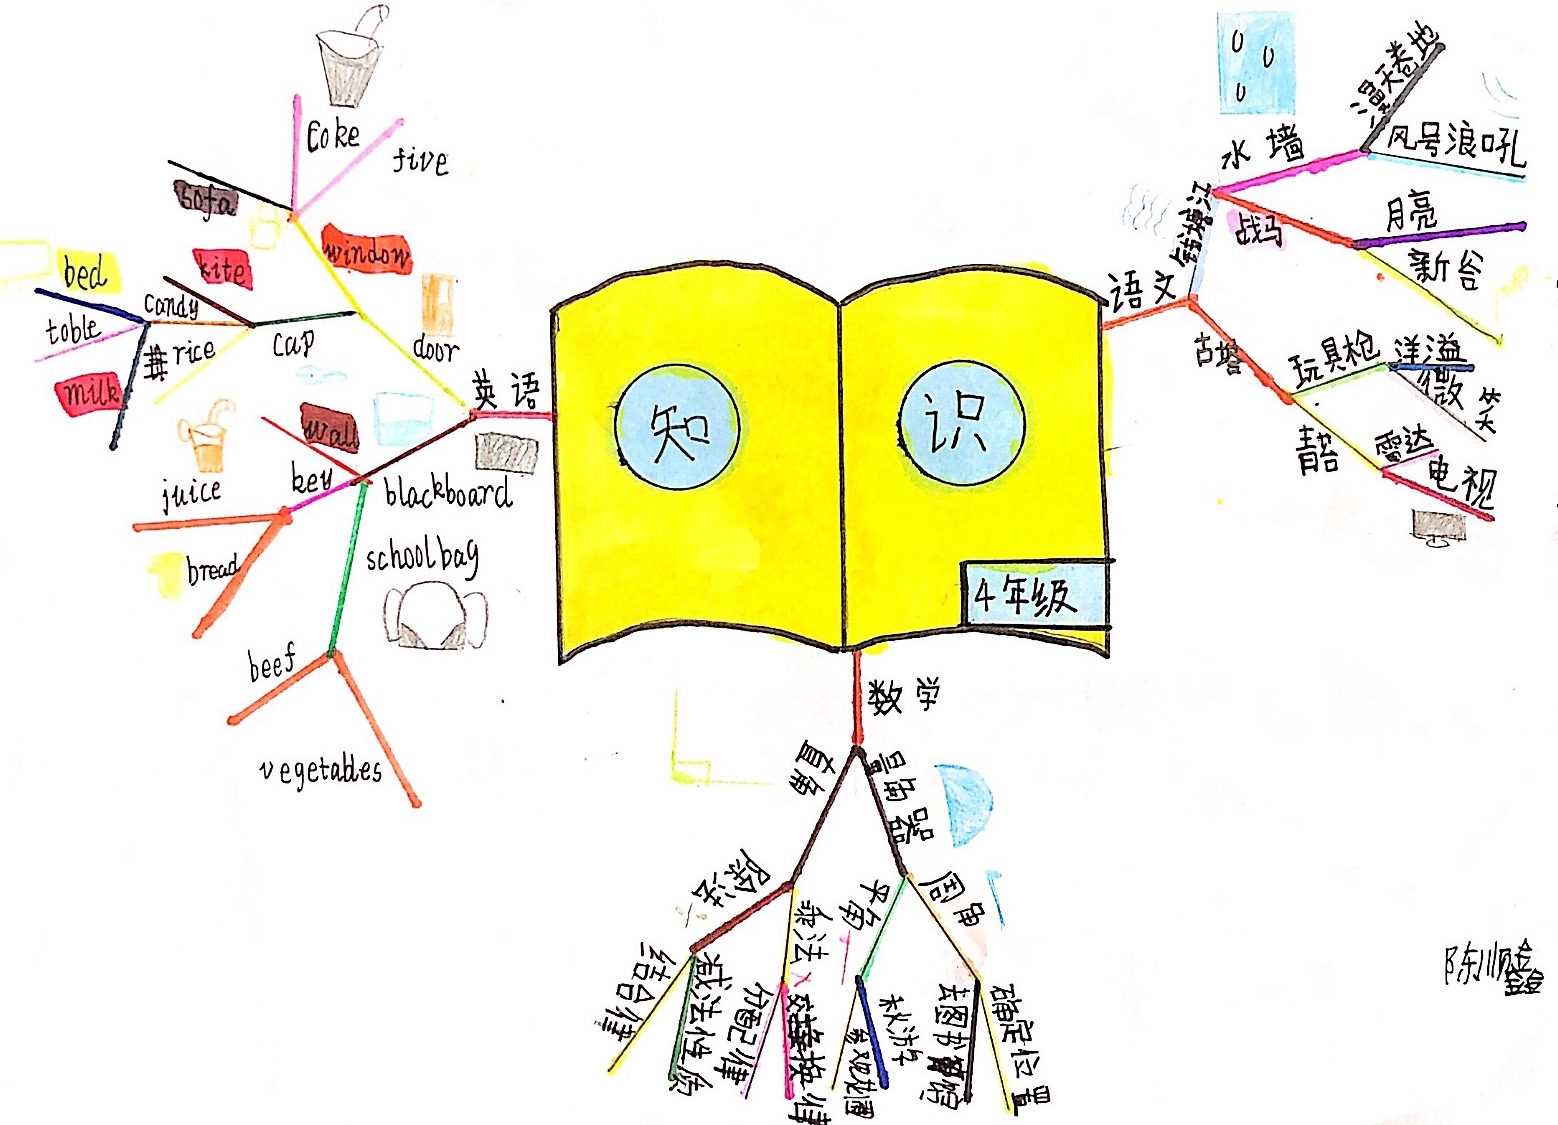 知识
4年级
英语
door
window
sofa
Coke
five
cap
kite
candy
rice
bed
toble
milk
blackboard
wall
key
juice
bread
schoolbag
beef
vegetables
语文
钱塘江
水墙
风号浪吼
战马
月亮
新谷
古塔
玩具枪
洋溢
微笑
雷达
电视
数学
直角
除法
结合律
减法性质
乘法
分配律
交换律
量角器
平角
参观花园
秋游
周角
去图书馆
确定位置
陈顺鑫